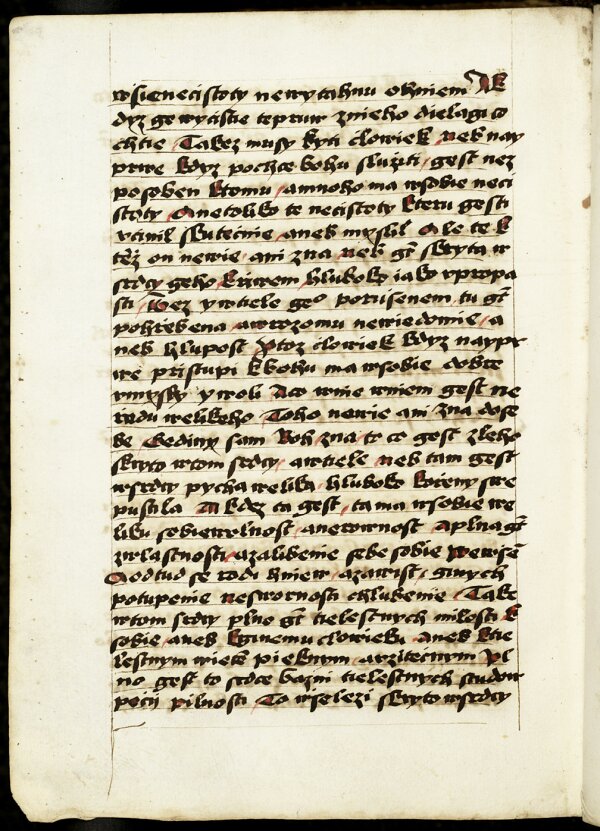 wsie necistoty newytahnu ohniem Ak
dyz gewycistie tepruw znieho dielagi co
chtie Takez musy byti clowiek neb nay
prwe kdyz pochce bohu sluziti gest nez
posoben ktomu a mnoho ma wsobie neci
stoty A netoliko te necistoty kteru gest
vcinil skutecnie aneb myslil Ale te k
tez on newie ani zna neb gt skryta w
srdcy geho krziwem hluboko iako vpropa
sti Tez y wtiele geo porusenem tu gt
pohrzebena a wrozomu newiedomie a
neb hlupost Protoz clowiek kdyz naypr
we pristupi kbohu ma wsobie dobre
vmysly y woli A co wnie wniem gest ne
rzadu welikeho Toho newie ani zna dose
be Gediny sam Boh zna to co gest zleho
skryto wtom srdcy a wtiele neb tam gest
wsrdcy pycha welika hluboko korzeny swe
pustila A kdez ta gest ta ma wsobie we
liku sobiewolnost a netrownost A plna gt
zwlastnosti a zalibenie sebe sobie wewsse
A odtud se rodi hniew a zawist ginych
potupenie neswornosti chlubenie Take
wtom srdcy plno gt tielestnych milosti k
sobie aneb kginemu clowieku aneb ktie
lestnym wiecem pieknym a rziteczum Pl
no gest to srdce bazni tielestnych studow
pecii pilnosti To wse lezi skryto wsrdcy